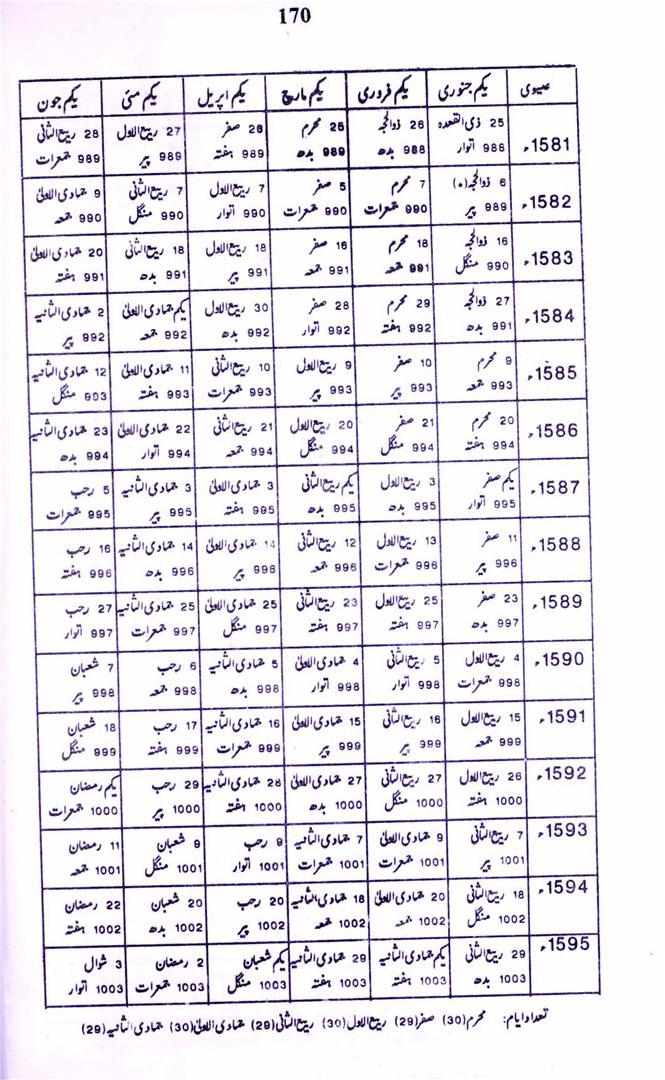 170
عیسوی یکم جنوری یکم فروری یکم مارچ یکم اپریل یکم مئی یکم جون
1581ء 25 ذی القعدہ 26 ذوالحجہ 25 محرم 26 صفر 27 ربیع الاول 28 ربیع الثانی
988 اتوار 988 بدھ 989 بدھ 989 ہفتہ 989 پیر 989 جمعرات
1582ء 6 ذوالحجہ (٭) 7 محرم 5 صفر 7 ربیع الاول 7 ربیع الثانی 9 جمادی الاولیٰ
989 پیر 990 جمعرات 990 جمعرات 990 اتوار 990 منگل 990 جمعہ
1583ء 16 ذوالحجہ 18 محرم 16 صفر 18 ربیع الاول 18 ربیع الثانی 20 جمادی الاولیٰ
990 منگل 991 جمعہ 991 جمعہ 991 پیر 991 بدھ 991 ہفتہ
1584ء 27 ذوالحجہ 29 محرم 28 صفر 30 ربیع الاول یکم جمادی الاولیٰ 2 جمادی الثانیہ
991 بدھ 992 ہفتہ 992 اتوار 992 بدھ 992 جمعہ 992 پیر
1585ء 9 محرم 10 صفر 9 ربیع الاول 10 ربیع الثانی 11 جمادی الاولیٰ 12 جمادی الثانیہ
993 جمعہ 993 پیر 993 پیر 993 جمعرات 993 ہفتہ 993 منگل
1586ء 20 محرم 21 صفر 20 ربیع الاول 21 ربیع الثانی 22 جمادی الاولیٰ 23 جمادی الثانیہ
994 ہفتہ 994 منگل 994 منگل 994 جمعہ 994 اتوار 994 بدھ
1587ء یکم صفر 3 ربیع الاول یکم ربیع الثانی 3 جمادی الاولیٰ 3 جمادی الثانیہ 5 رجب
995 اتوار 995 بدھ 995 بدھ 995 ہفتہ 995 پیر 995 جمعرات
1588ء 11 صفر 13 ربیع الاول 12 ربیع الثانی 14 جمادی الاولیٰ 14 جمادی الثانیہ 16 رجب
996 پیر 996 جمعرات 996 جمعہ 996 پیر 996 بدھ 996 ہفتہ
1589ء 23 صفر 25 ربیع الاول 23 ربیع الثانی 25 جمادی الاولیٰ 25 جمادی الثانیہ 27 رجب
997 بدھ 997 ہفتہ 997 ہفتہ 997 منگل 997 جمعرات 997 اتوار
1590ء 4 ربیع الاول 5 ربیع الثانی 4 جمادی الاولیٰ 5 جمادی الثانیہ 6 رجب 7 شعبان
998 جمعرات 998 اتوار 998 اتوار 998 بدھ 998 جمعہ 998 پیر
1591ء 15 ربیع الاول 16 ربیع الثانی 15 جمادی الاولیٰ 16 جمادی الثانیہ 17 رجب 18 شعبان
999 جمعہ 999 پیر 999 پیر 999 جمعرات 999 ہفتہ 999 منگل
1592ء 26 ربیع الاول 27 ربیع الثانی 27 جمادی الاولیٰ 28 جمادی الثانیہ 29 رجب یکم رمضان
1000 ہفتہ 1000 منگل 1000 بدھ 1000 ہفتہ 1000 پیر 1000 جمعرات
1593ء 7 ربیع الثانی 9 جمادی الاولیٰ 7 جمادی الثانیہ 9 رجب 9 شعبان 11 رمضان
1001 پیر 1001 جمعرات 1001 جمعرات 1001 اتوار 1001 منگل 1001 جمعہ
1594ء 18 ربیع الثانی 20 جمادی الاولیٰ 18 جمادی الثانیہ 20 رجب 20 شعبان 22 رمضان
1002 منگل 1002 جمعہ 1002 جمعہ 1002 پیر 1002 بدھ 1002 ہفتہ
1595ء 29 ربیع الثانی یکم جمادی الثانیہ 29 جمادی الثانیہ یکم شعبان 2 رمضان 3 شوال
1003 بدھ 1003 ہفتہ 1003 ہفتہ 1003 منگل 1003 جمعرات 1003 اتوار
تعداد ایام: محرم (30) صفر (29) ربیع الاول (30) ربیع الثانی (29) جمادی الاولیٰ (30) جمادی الثانیہ (29)